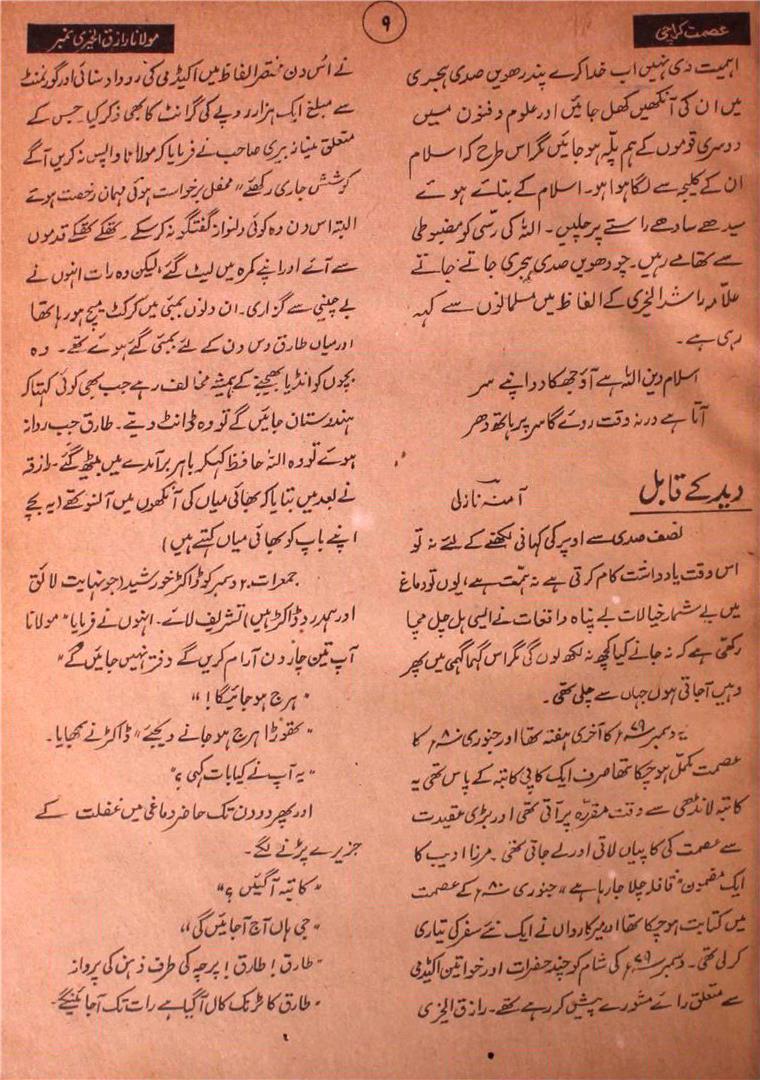 عصمت کراچی
۹
مولانا رازق الخیری نمبر
اہمیت دی نہیں اب خدا کرے پندرھویں صدی ہجری
میں ان کی آنکھیں کھل جائیں اور علوم و فنون میں
دوسری قوموں کے ہم پلہ ہو جائیں مگر اس طرح کہ اسلام
ان کے کلیجہ سے لگا ہوا ہو۔ اسلام کے بنائے ہوئے
سیدھے سادھے راستے پر چلیں۔ اللہ کی رسّی کو مضبوطی
سے تھامے رہیں۔ چودھویں صدی ہجری جاتے جاتے
علّامہ راشد الخیری کے الفاظ میں مسلمانوں سے کہہ
رہی ہے۔
اسلام دین اللہ ہے آؤ جھکا دو اپنے سر
آتا ہے ورنہ وقت روئے گا سر پر ہاتھ دھر
دید کے قابل
آمنہ نازلی
نصف صدی سے اوپر کی کہانی لکھنے کے لئے نہ تو
اس وقت یادداشت کام کرتی ہے نہ ہمت ہے، یوں تو دماغ
میں بے شمار خیالات بے پناہ واقعات نے ایسی ہل چل مچا
رکھی ہے کہ نہ جانے کیا کچھ نہ لکھ لوں گی مگر اس گہما گہمی میں پھر
وہیں آ جاتی ہوں جہاں سے چلی تھی۔
یہ دسمبر ۷۹ء کا آخری ہفتہ تھا اور جنوری ۸۰ء کا
عصمت مکمل ہو چکا تھا صرف ایک کاپی کاتبہ کے پاس تھی یہ
کاتبہ لانڈھی سے وقت مقررہ پر آتی تھی اور بڑی عقیدت
سے عصمت کی کاپیاں لاتی اور لے جاتی تھی۔ مرزا ادیب کا
ایک مضمون "قافلہ چلا جا رہا ہے" جنوری ۸۰ء کے عصمت
میں کتابت ہو چکا تھا اور میر کارواں نے ایک نئے سفر کی تیاری
کر لی تھی۔ دسمبر ۷۹ء کی شام کو چند حضرات اور خواتین اکیڈمی
سے متعلق رائے مشورے پیش کر رہے تھے۔ رازق الخیری
نے اُس دن مختصر الفاظ میں اکیڈمی کی روداد سنائی اور گورنمنٹ
سے مبلغ ایک ہزار روپے کی گرانٹ کا بھی ذکر کیا۔ جس کے
متعلق صاحب نے فرمایا کہ مولانا واپس نہ کریں آگے
کوشش جاری رکھئے" محفل برخواست ہوئی مہمان رخصت ہوئے
البتہ اس دن وہ کوئی دلنواز گفتگو نہ کر سکے۔ تھکے تھکے قدموں
سے آئے اور اپنے کمرہ میں لیٹ گئے، لیکن وہ رات انہوں نے
بے چینی سے گزاری۔ ان دنوں بمبئی میں کرکٹ میچ ہو رہا تھا
اور میاں طارق دس دن کے لئے بمبئی گئے ہوئے تھے۔ وہ
بچوں کو انڈیا بھیجنے کے ہمیشہ مخالف رہے جب بھی کوئی کہتا کہ
ہندوستان جائیں گے تو وہ ڈانٹ دیتے۔ طارق جب روانہ
ہوئے تو وہ اللہ حافظ کہہ کر باہر برآمدے میں بیٹھ گئے۔ رازقہ
نے بعد میں بتایا کہ بھائی میاں کی آنکھوں میں آنسو تھے (یہ بچے
اپنے باپ کو بھائی میاں کہتے ہیں)
جمعرات ۲۰ دسمبر کو ڈاکٹر خورشید (جو نہایت لائق
اور ہمدرد ڈاکٹر ہیں) تشریف لائے۔ انہوں نے فرمایا "مولانا
آپ تین چار دن آرام کریں گے دفتر نہیں جائیں گے"
"ہرج ہو جائیگا!"
"تھوڑا ہرج ہو جانے دیجئے" ڈاکٹر نے سمجھایا۔
"یہ آپ نے کیا بات کہی؟"
اور پھر دو دن تک حاضر دماغی میں غفلت کے
جزیرے پڑنے لگے۔
"کاتبہ آگئیں؟"
"جی ہاں آج آجائیں گی"
"طارق! طارق! پرچہ کی طرف ذہن کی پرواز
"طارق کا ٹرنک کال آگیا ہے رات تک آجائینگے۔